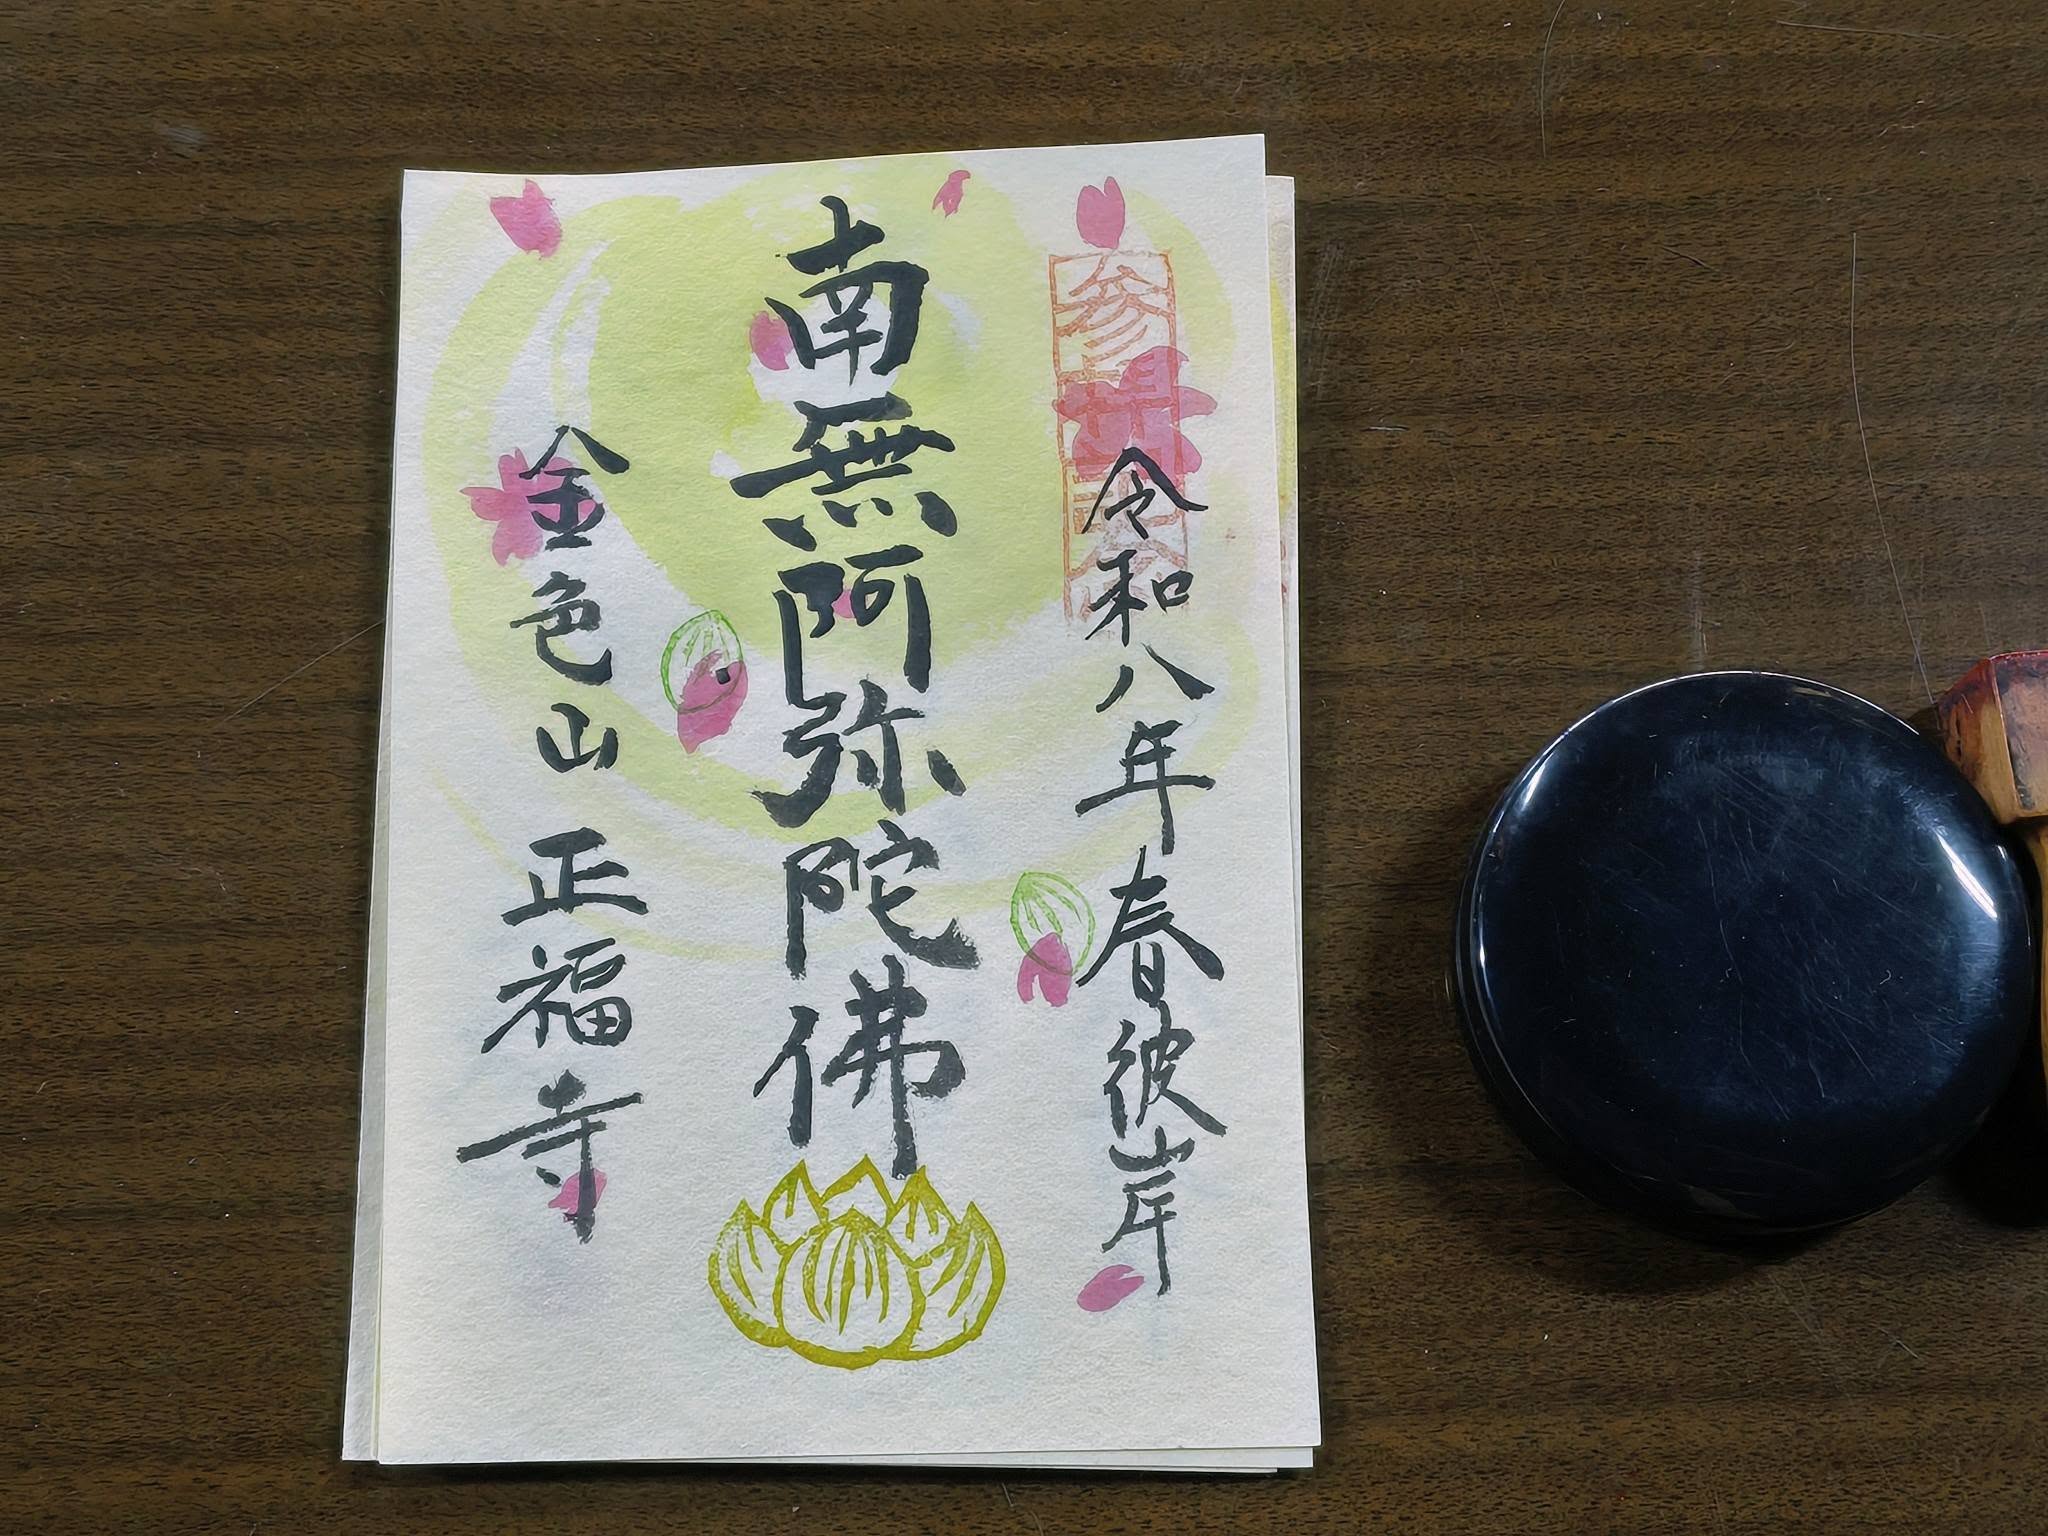 令和八年春彼岸
南無阿弥陀佛
金色山 正福寺